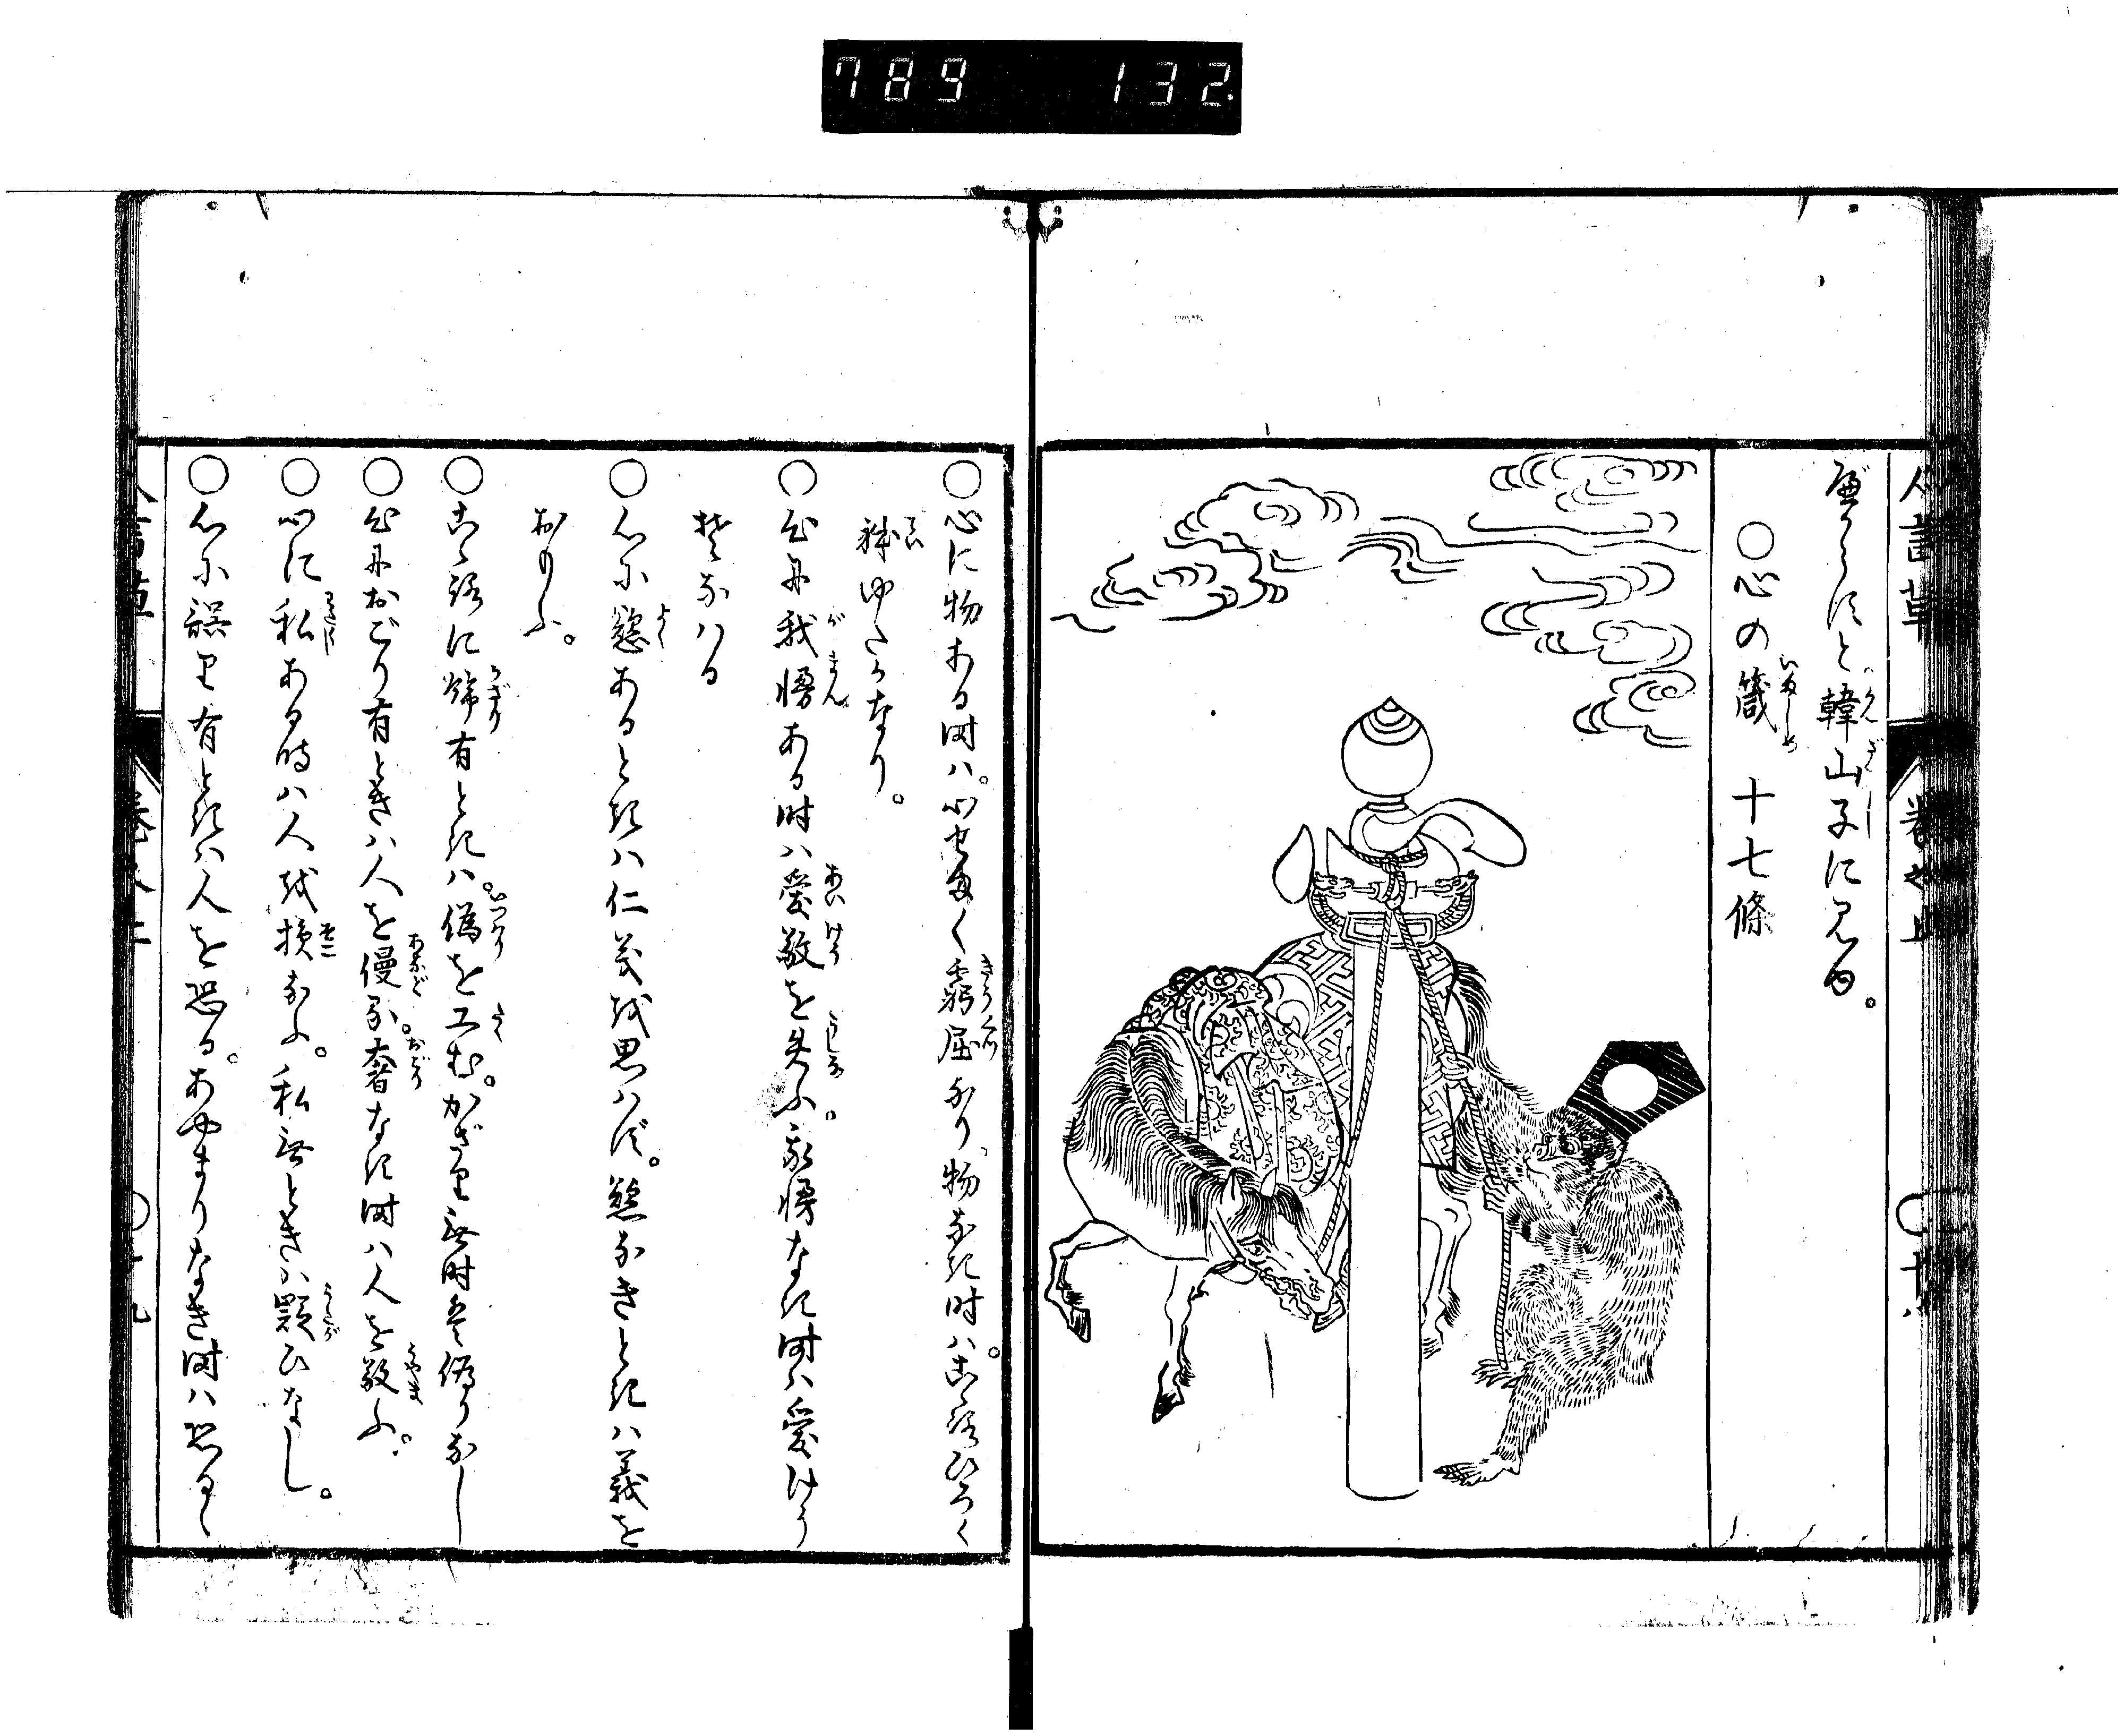 789 132
べからずと韓山子に見ゆ。
○心の箴 十七條
○心に物ある時ハ。心せまく窮屈なり、物なき時ハ。こゝろひろく
躰ゆたかなり。
○心に我慢ある時ハ愛敬を失ふ。我慢なき時ハ愛けう
そなハる
○心に慾あるときハ仁義を思ハず。慾なきときハ義を
おもふ。
○こゝろに餝有ときハ。偽を工む。かざり無時ハ偽りなし
○心におごり有ときハ人を慢る。奢なき時ハ人を敬ふ。
○心に私ある時ハ人を損なふ。私無ときハ疑ひなし。
○心に誤り有ときハ人を恐る。あやまりなき時ハ恐るゝ